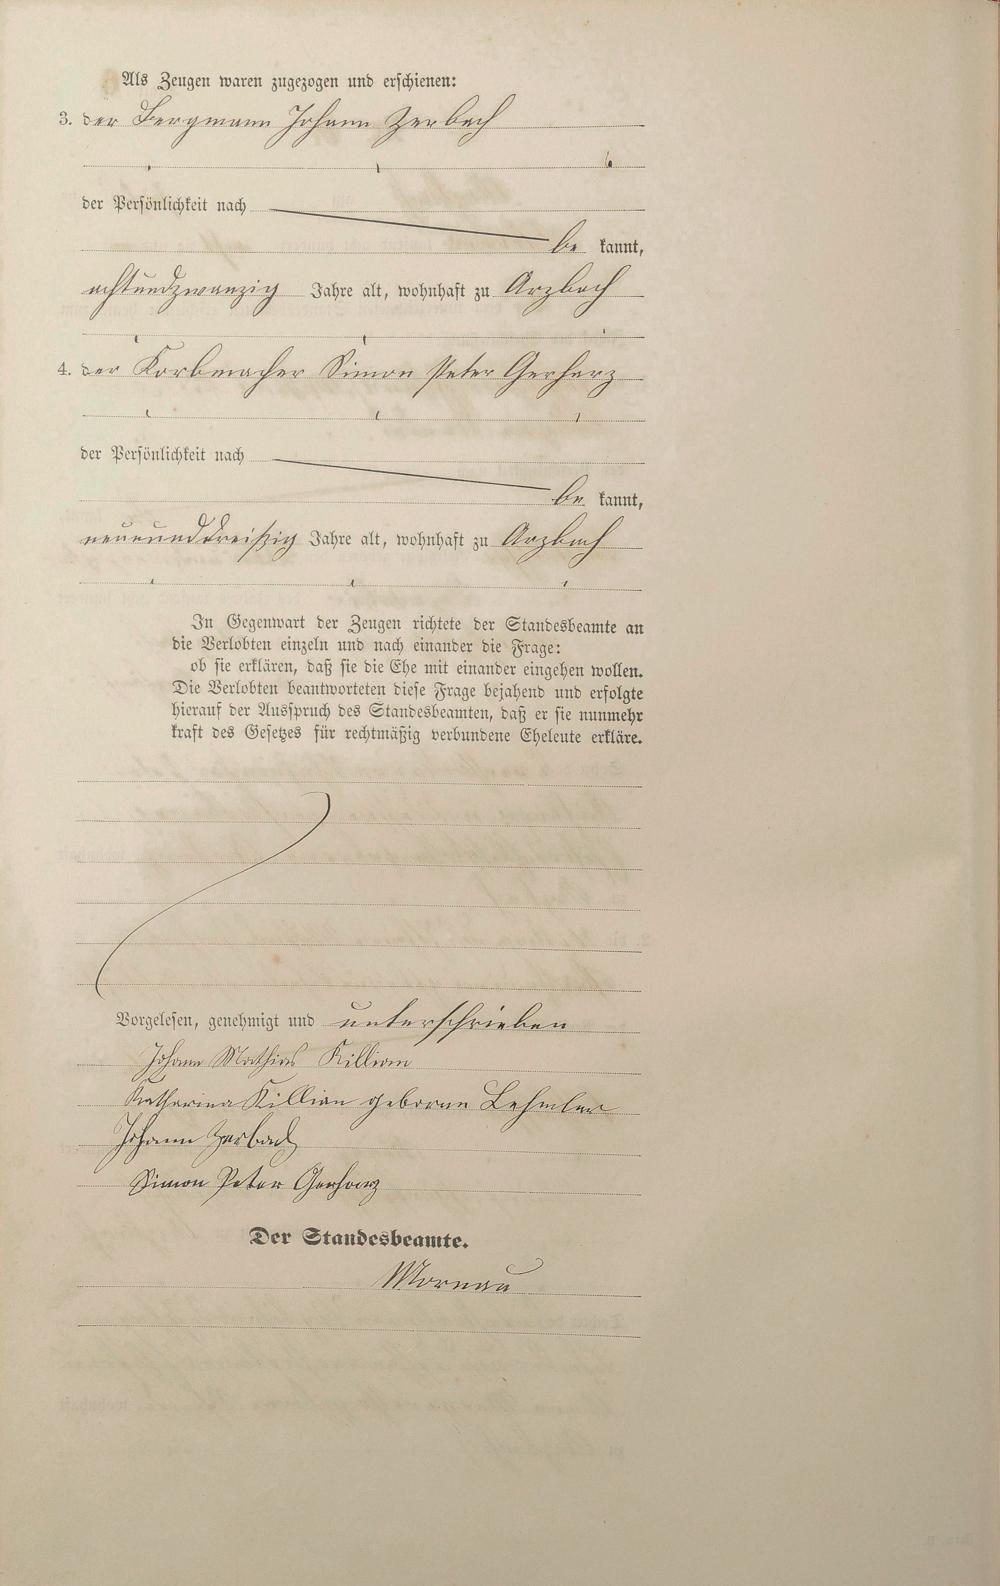 Als Zeugen waren zugezogen und erschienen:
3. der Bergmann Johann Zerbach
der Persönlichkeit nach
be kannt,
achtundzwanzig Jahre alt, wohnhaft zu Arzbach
4. der Korbmacher Simon Peter Gerharz
der Persönlichkeit nach
be kannt,
neununddreißig Jahre alt, wohnhaft zu Arzbach
In Gegenwart der Zeugen richtete der Standesbeamte an
die Verlobten einzeln und nach einander die Frage:
ob sie erklären, daß sie die Ehe mit einander eingehen wollen.
Die Verlobten beantworteten diese Frage bejahend und erfolgte
hierauf der Ausspruch des Standesbeamten, daß er sie nunmehr
kraft des Gesetzes für rechtmäßig verbundene Eheleute erkläre.
Vorgelesen, genehmigt und unterschrieben
Johann Mathias Killian
Katharina Killian geborne Lehmler
Johann Zerbach
Simon Peter Gerharz
Der Standesbeamte.
Mornau